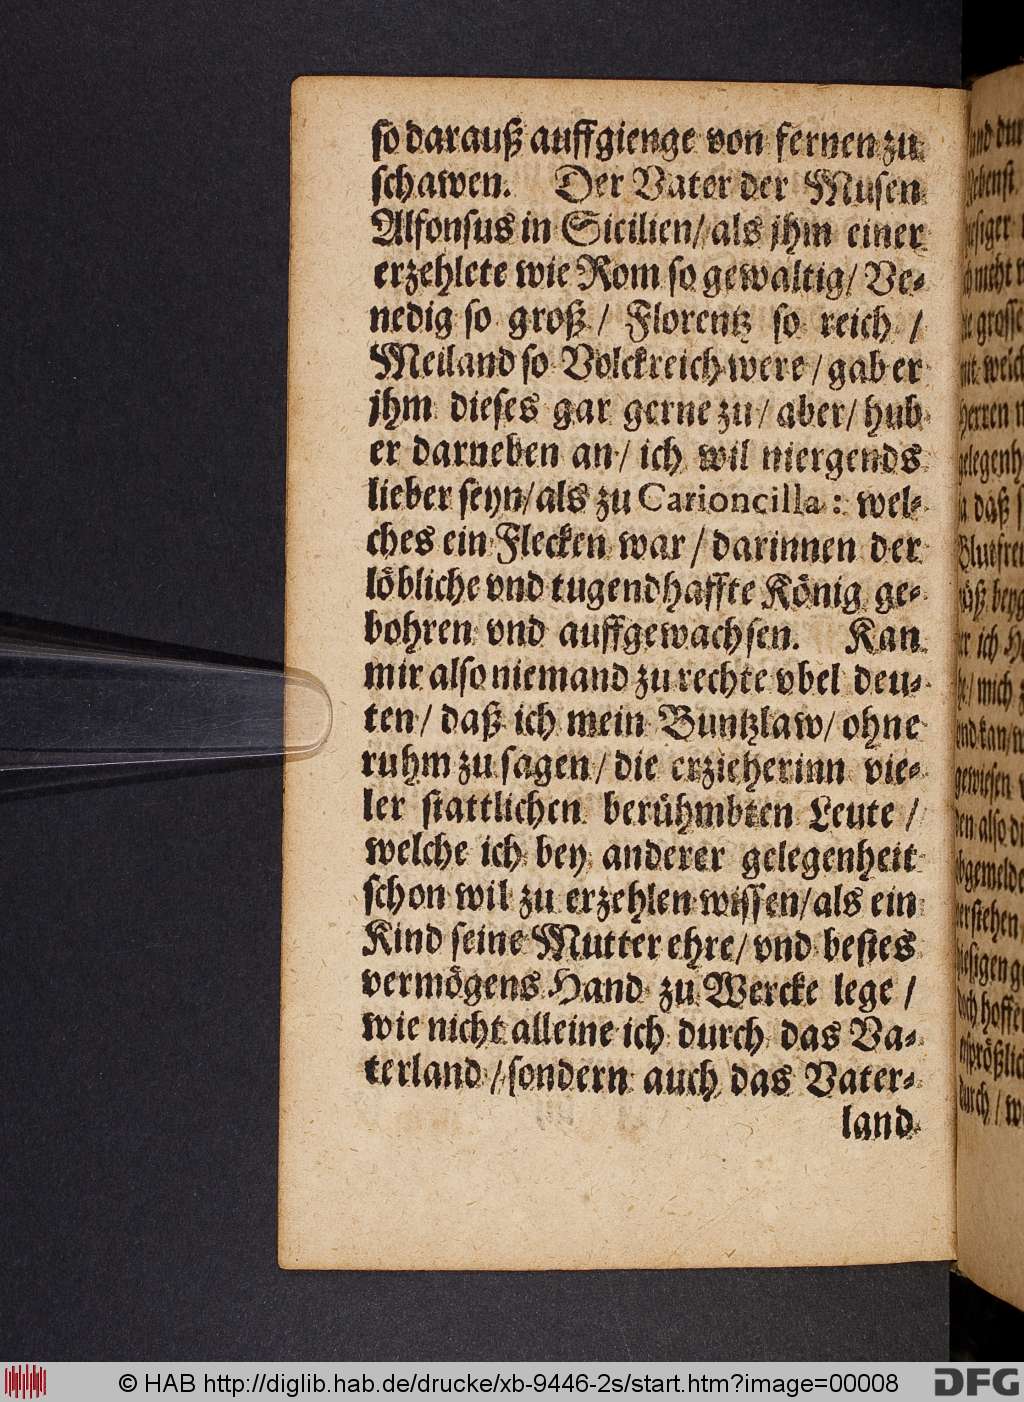 so darauß auffgienge von fernen zu
schawen. Der Vater der Musen
Alfonsus in Sicilien/ als jhm einer
erzehlete wie Rom so gewaltig/ Ve-
nedig so groß / Florentz so reich /
Meiland so Volckreich were / gab er
jhm dieses gar gerne zu / aber / hub
er darneben an / ich wil niergends
lieber seyn/ als zu Carioncilla : wel-
ches ein Flecken war / darinnen der
löbliche vnd tugendhaffte König ge-
bohren vnd auffgewachsen. Kan
mir also niemand zu rechte vbel deu-
ten / daß ich mein Buntzlaw / ohne
ruhm zu sagen / die erzieherinn vie-
ler stattlichen berühmbten Leute /
welche ich bey anderer gelegenheit
schon wil zu erzehlen wissen/ als ein
Kind seine Mutter ehre/ vnd bestes
vermögens Hand zu Wercke lege /
wie nicht alleine ich durch das Va-
terland / sondern auch das Vater-
land
© HAB http://diglib.hab.de/drucke/xb-9446-2s/start.htm?image=00008
DFG